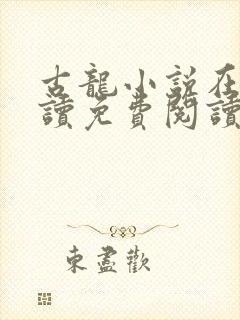 古龍小說在
讀免費閱讀
東盡歡